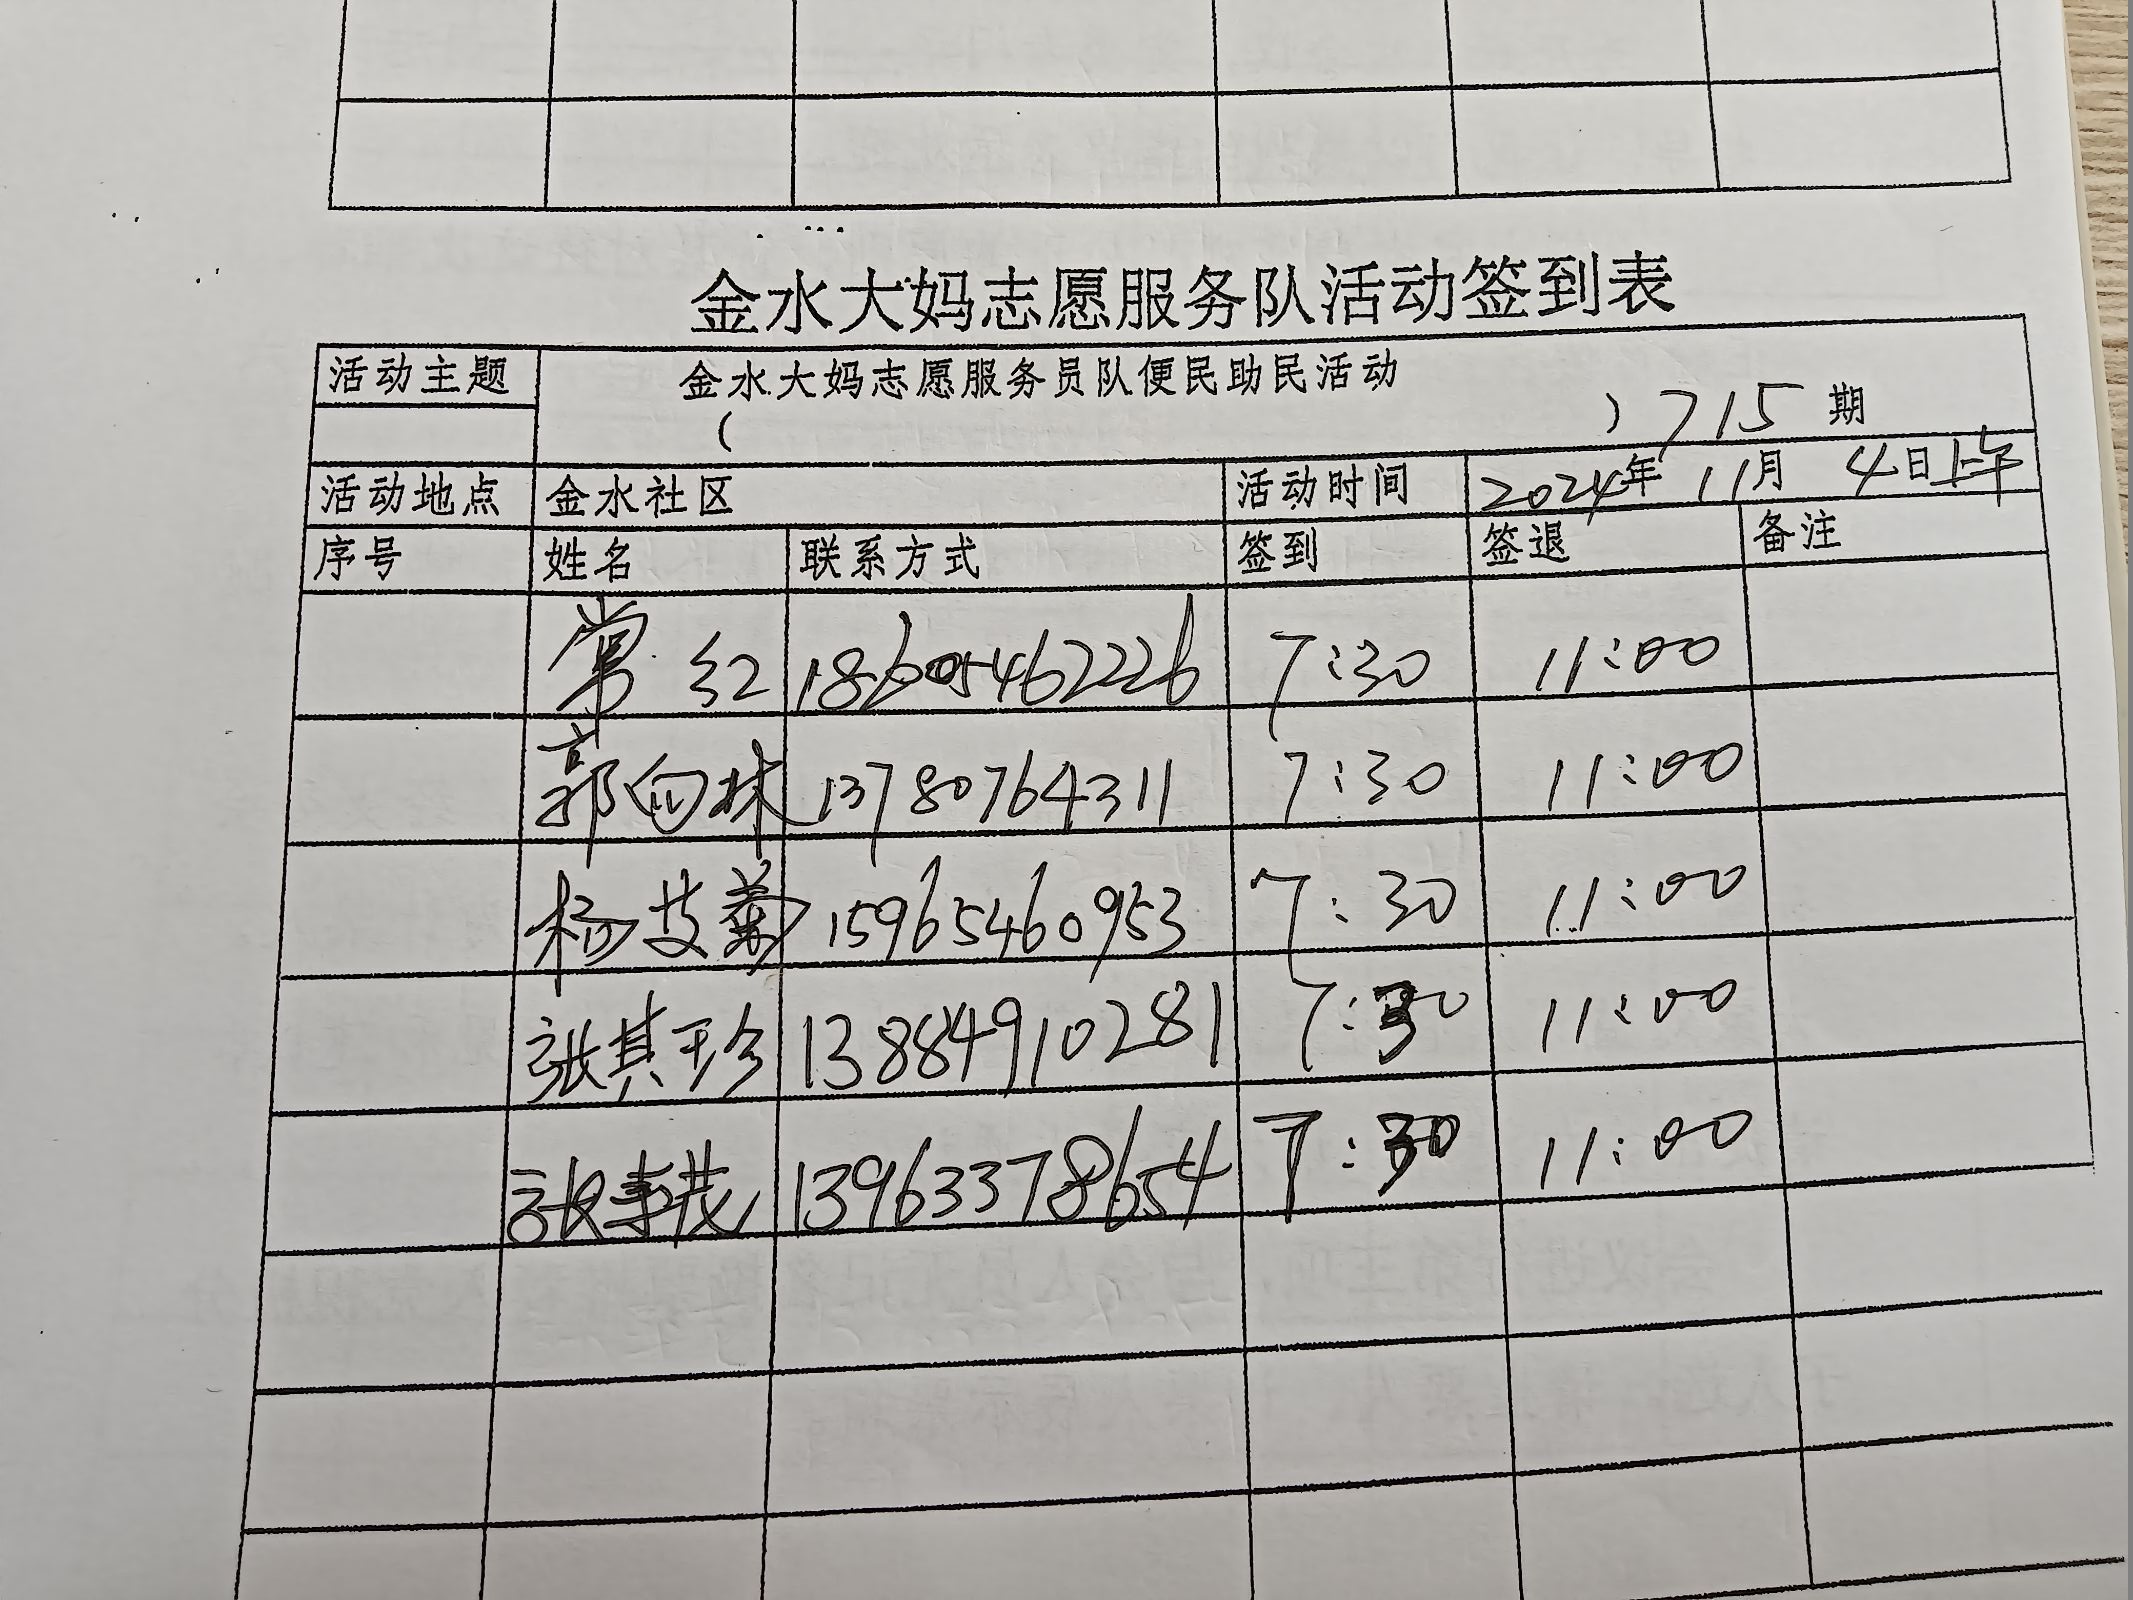 金水大妈志愿服务队活动签到表
活动主题 金水大妈志愿服务员队便民助民活动
( ) 715 期
活动地点 金水社区 活动时间 2024年 11月 4日上午
序号 姓名 联系方式 签到 签退 备注
常红 18605462226 7:30 11:00
郭向林 13780764311 7:30 11:00
杨芝菊 15965460953 7:30 11:00
张其珍 13884910281 7:30 11:00
张 13963378654 7:30 11:00